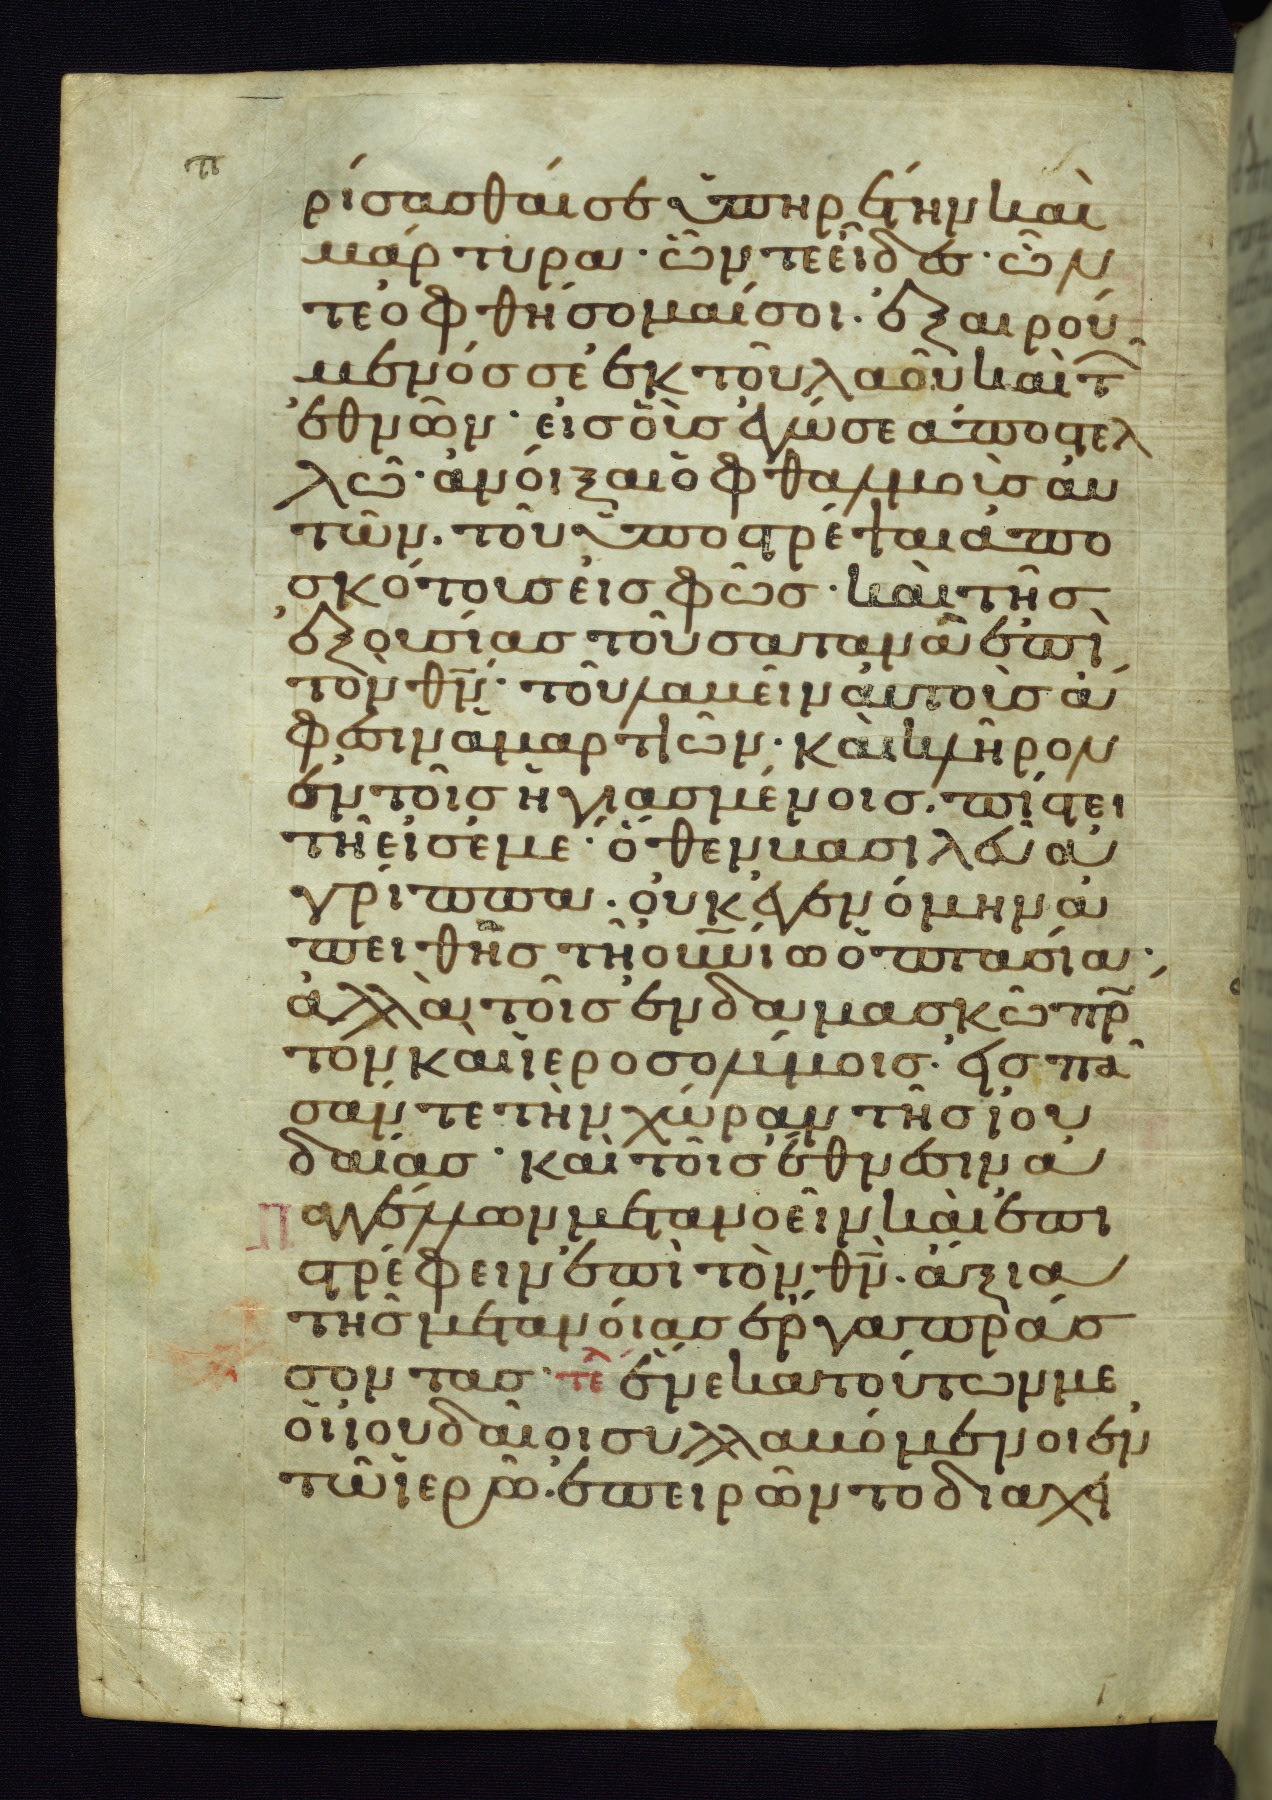 π
ρίσασθαί σε ὑπηρέτην καὶ
μάρτυρα· ὧν τε εἶδες· ὧν
τε ὀφθήσομαί σοι· ἐξαιρού
μενός σε ἐκ τοῦ λαοῦ καὶ τῶ
ἐθνῶν· εἰς οὓς ἐγώ σε ἀποστελ
λῶ· ἀνοίξαι ὀφθαλμοὺς αὐ
τῶν· τοῦ ὑποστρέψαι ἀπὸ
σκότους εἰς φῶς· καὶ τῆς
ἐξουσίας τοῦ σατανᾶ ἐπὶ
τὸν θν̄· τοῦ λαβεῖν αὐτοὺς ἄ
φεσιν ἁμαρτιῶν· καὶ κλῆρον
ἐν τοῖς ἡγιασμένοις· πίστει
τῆ εἰς ἐμέ· ὅθεν βασιλεῦ ἀ
γρίππα· οὐκ ἐγενόμην ἀ
πειθὴς τῆ οὐν̄ίω ὀπτασία·
ἀλλὰ τοῖς ἐν δαμασκῶ πρῶ
τον καὶ ἱεροσολύμοις· εἰς πᾶ
σάν τε τὴν χώραν τῆς ἰου
δαίας· καὶ τοῖς ἔθνεσιν ἀ
παγγέλλων μετανοεῖν καὶ ἐπι
στρέφειν ἐπὶ τὸν θν̄· ἄξια
τῆς μετανοίας ἔργα πράσ
σοντας· τελ ἕνεκα τούτων με
οἱ ἰουδαῖοι συλλαβόμενοι ἐν
τῶ ἱερῶ· ἐπειρῶντο διαχει